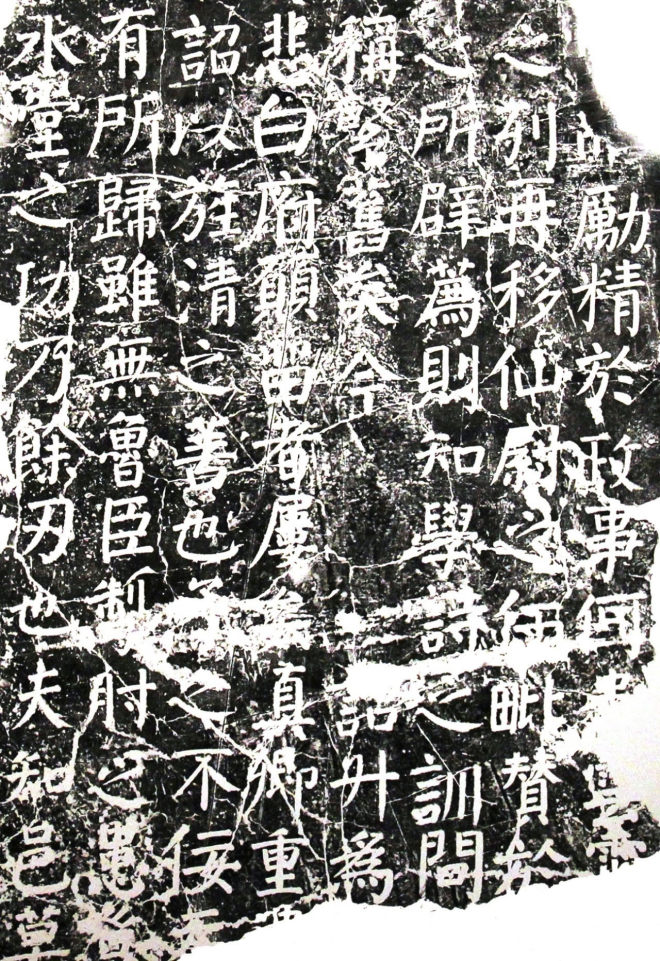 勵精於政事何
之列再移仙尉之任毗贊於
之所辟薦則知學詩之訓間
稱緊舊矣今二詔升為
悲自府顧留者屢矣真卿重
詔以旌清之善也之不佞
有所歸雖無魯臣掣肘之患
水堂之功乃餘刃也夫知邑莫